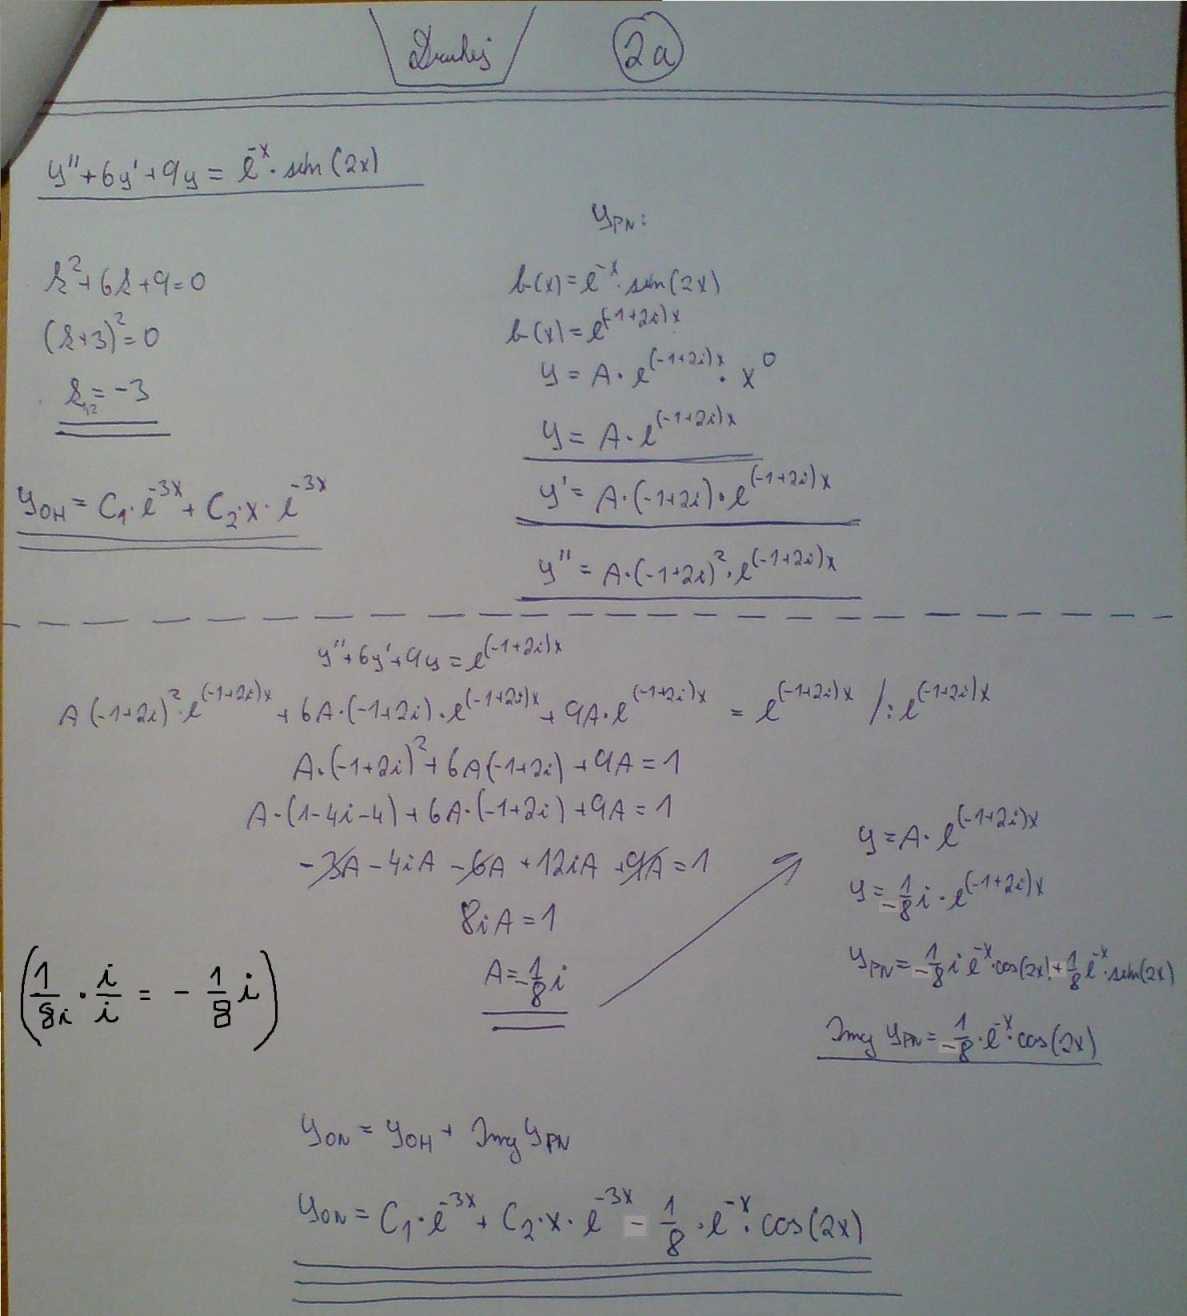 Druhej
2a
y'' + 6y' + 9y = e^-x · sin(2x)
k² + 6k + 9 = 0
(k+3)² = 0
k₁,₂ = -3
y_OH = C₁·e^-3x + C₂·x·e^-3x
y_PN:
b(x) = e^-x · sin(2x)
b(x) = e^(-1+2i)x
y = A·e^(-1+2i)x · x^0
y = A·e^(-1+2i)x
y' = A·(-1+2i)·e^(-1+2i)x
y'' = A·(-1+2i)²·e^(-1+2i)x
y'' + 6y' + 9y = e^(-1+2i)x
A(-1+2i)²·e^(-1+2i)x + 6A·(-1+2i)·e^(-1+2i)x + 9A·e^(-1+2i)x = e^(-1+2i)x /:e^(-1+2i)x
A·(-1+2i)² + 6A(-1+2i) + 9A = 1
A·(1-4i-4) + 6A·(-1+2i) + 9A = 1
-3A - 4iA - 6A + 12iA + 9A = 1
8iA = 1
A = -1/8 i
(1/8i · i/i = - 1/8 i)
y = A·e^(-1+2i)x
y = -1/8 i · e^(-1+2i)x
y_PN = -1/8 i e^-x·cos(2x) + 1/8 e^-x·sin(2x)
Img y_PN = -1/8·e^-x·cos(2x)
y_ON = y_OH + Img y_PN
y_ON = C₁·e^-3x + C₂·x·e^-3x - 1/8·e^-x·cos(2x)